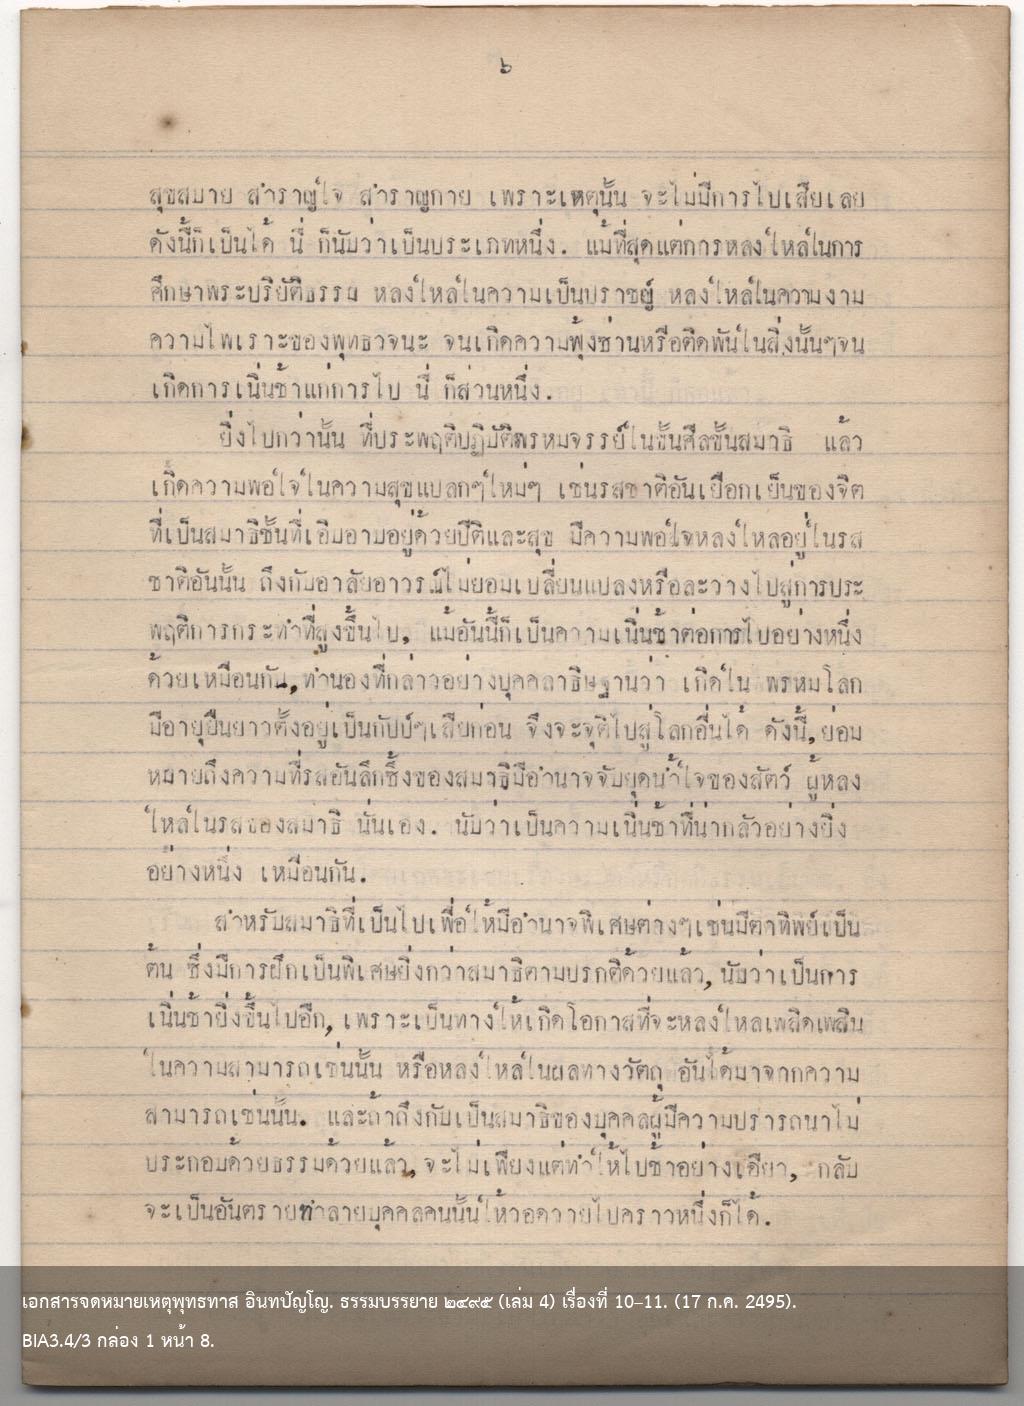 ๖
สุขสบาย สำราญใจ สำราญกาย เพราะเหตุนั้น จะไม่มีการไปเสียเลย
ดังนี้ก็เป็นได้ นี่ ก็นับว่าเป็นประเภทหนึ่ง. แม้ที่สุดแต่การหลงใหลในการ
ศึกษาพระปริยัติธรรม หลงใหลในความเป็นปราชญ์ หลงใหลในความงาม
ความไพเราะของพุทธวจนะ จนเกิดความฟุ้งซ่านหรือติดพันในสิ่งนั้นๆจน
เกิดการเนิ่นช้าแก่การไป นี่ ก็ส่วนหนึ่ง.
ยิ่งไปกว่านั้น ที่ประพฤติปฏิบัติพรหมจรรย์ในชั้นศีลชั้นสมาธิ แล้ว
เกิดความพอใจในความสุขแปลกๆใหม่ๆ เช่นรสชาติอันเยือกเย็นของจิต
ที่เป็นสมาธิชั้นที่เอิบอาบอยู่ด้วยปีติและสุข มีความพอใจหลงใหลอยู่ในรส
ชาติอันนั้น ถึงกับอาลัยอาวรณ์ไม่ยอมเปลี่ยนแปลงหรือละวางไปสู่การประ
พฤติการกระทำที่สูงขึ้นไป, แม้อันนี้ก็เป็นความเนิ่นช้าต่อการไปอย่างหนึ่ง
ด้วยเหมือนกัน,ทำนองที่กล่าวอย่างบุคคลาธิษฐานว่า เกิดใน พรหมโลก
มีอายุยืนยาวตั้งอยู่เป็นกัปป์ๆเสียก่อน จึงจะจุติไปสู่โลกอื่นได้ ดังนี้,ย่อม
หมายถึงความที่รสอันลึกซึ้งของสมาธิมีอำนาจจับยุดน้ำใจของสัตว์ ผู้หลง
ใหลในรสของสมาธิ นั่นเอง. นับว่าเป็นความเนิ่นช้าที่น่ากลัวอย่างยิ่ง
อย่างหนึ่ง เหมือนกัน.
สำหรับสมาธิที่เป็นไปเพื่อให้มีอำนาจพิเศษต่างๆเช่นมีตาทิพย์เป็น
ต้น ซึ่งมีการฝึกเป็นพิเศษยิ่งกว่าสมาธิตามปรกติด้วยแล้ว,นับว่าเป็นการ
เนิ่นช้ายิ่งขึ้นไปอีก,เพราะเป็นทางให้เกิดโอกาสที่จะหลงใหลเพลิดเพลิน
ในความสามารถเช่นนั้น หรือหลงใหลในผลทางวัตถุ อันได้มาจากความ
สามารถเช่นนั้น. และถ้าถึงกับเป็นสมาธิของบุคคลผู้มีความปรารถนาไม่
ประกอบด้วยธรรมด้วยแล้ว,จะไม่เพียงแต่ทำให้ไปช้าอย่างเดียว, กลับ
จะเป็นอันตรายทำลายบุคคลคนนั้นให้วอดวายไปคราวหนึ่งก็ได้.
เอกสารจดหมายเหตุพุทธทาส อินทปัญโญ. ธรรมบรรยาย ๒๔๙๕ (เล่ม 4) เรื่องที่ 10–11. (17 ก.ค. 2495).
BIA3.4/3 กล่อง 1 หน้า 8.